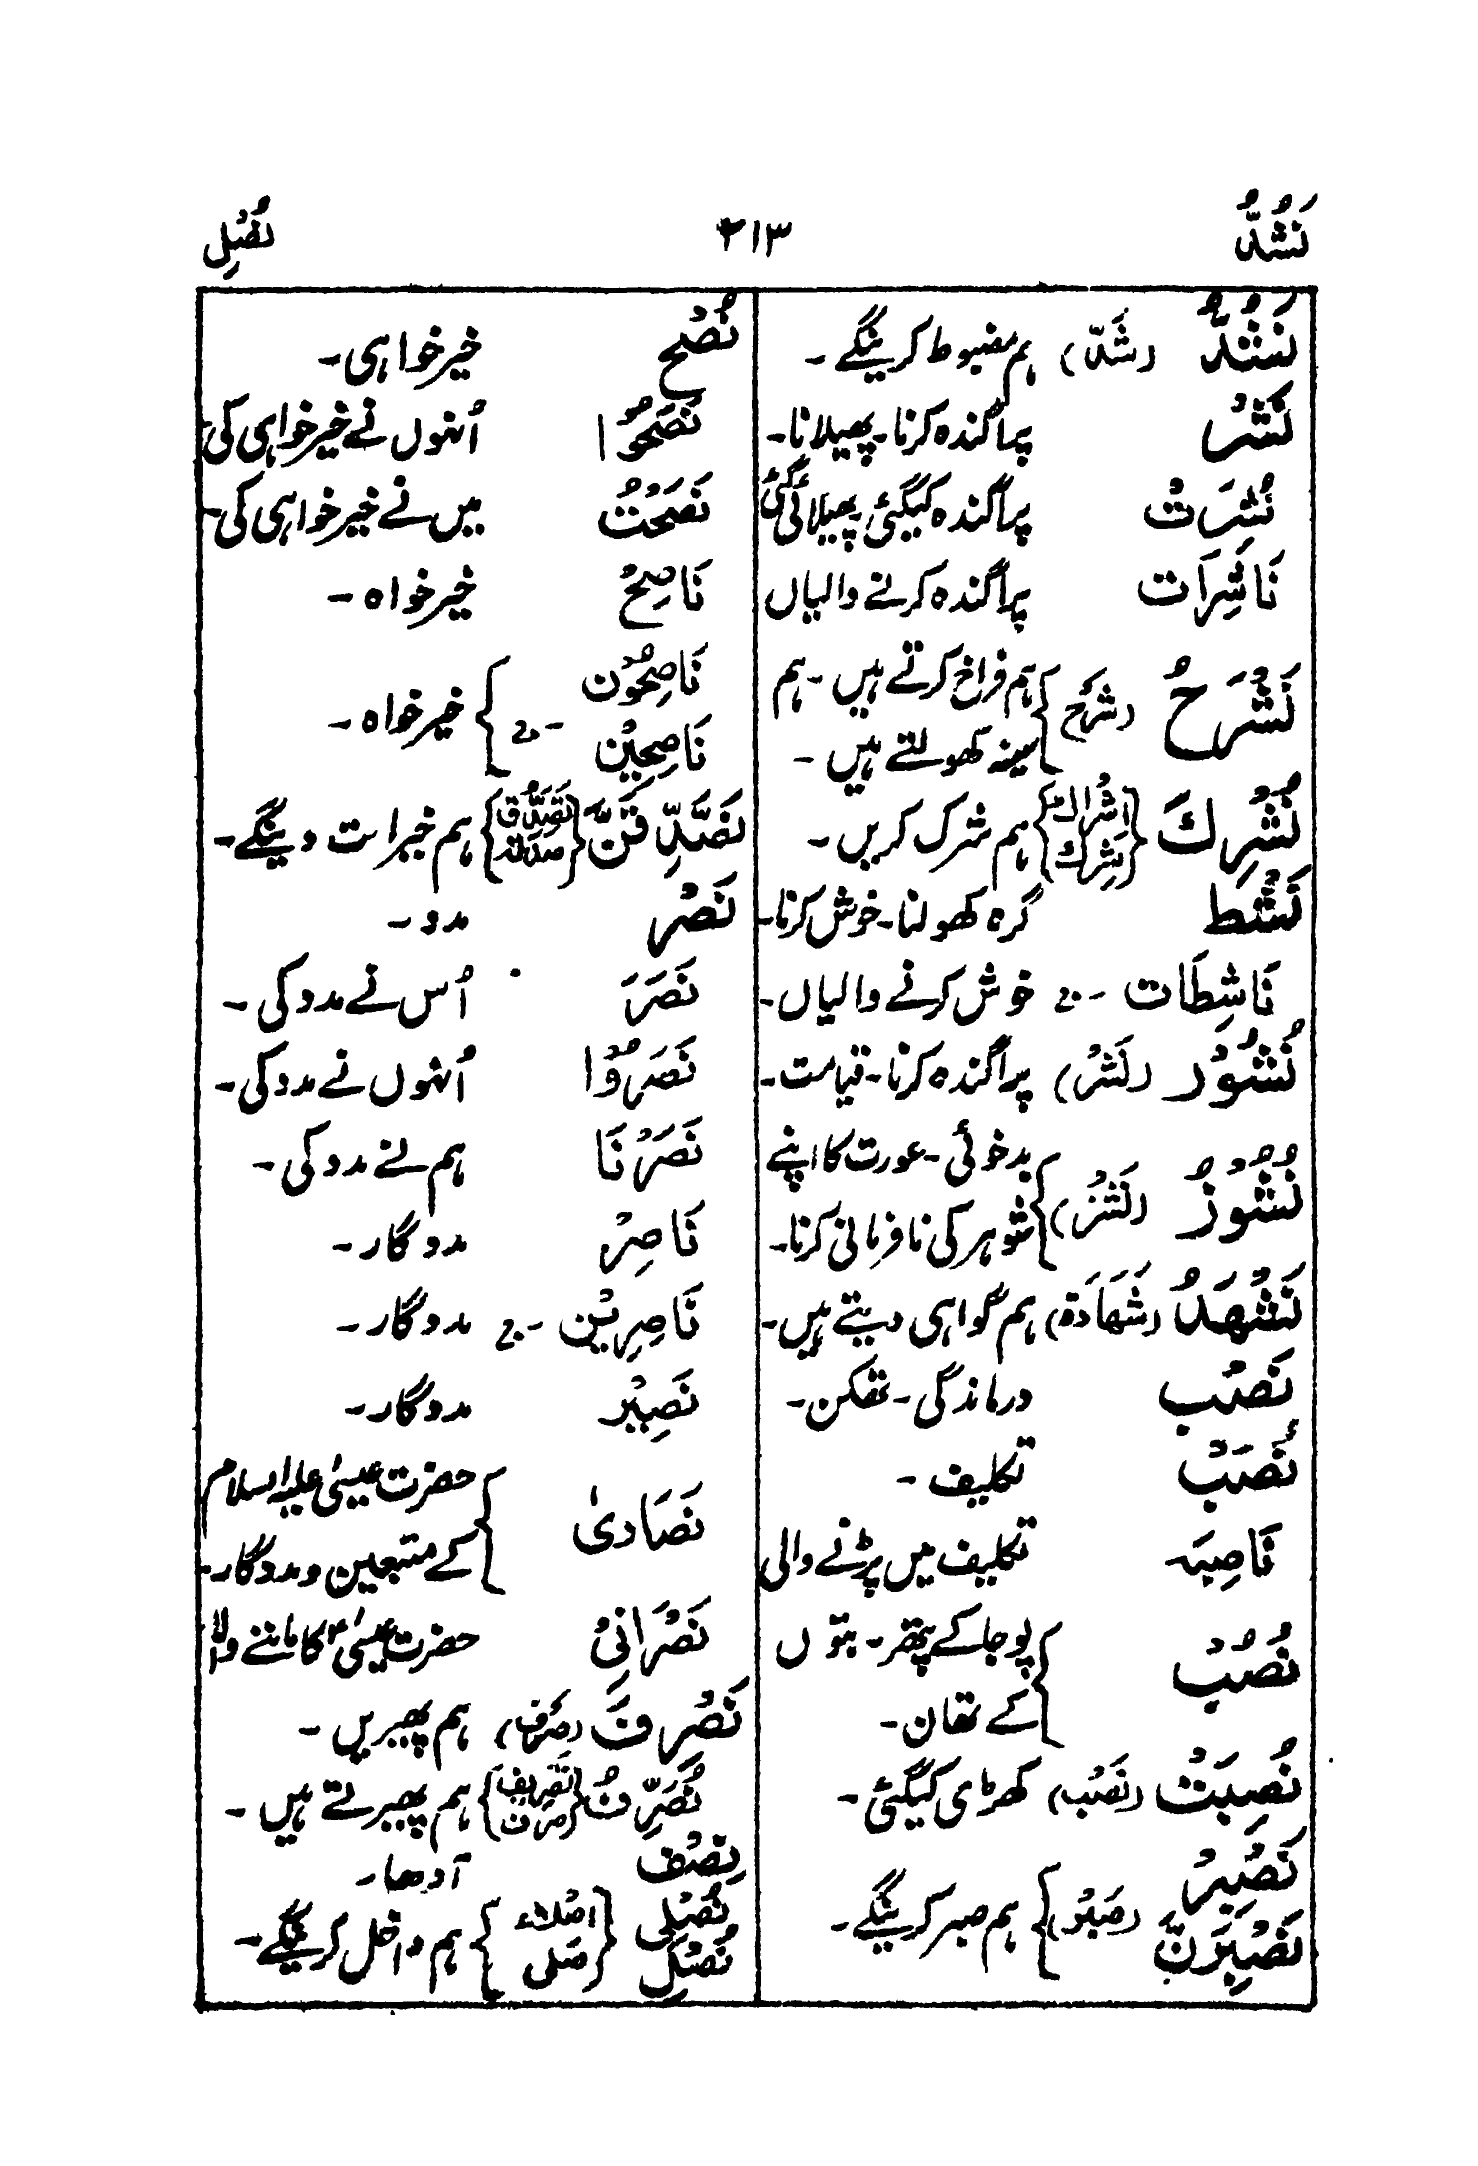 نَشُدُّ ۳۱۳ نُصْلِ
نَشُدُّ (شَدّ) ہم مضبوط کرینگے۔
نَشْر پراگندہ کرنا۔ پھیلانا۔
نُشِرَتْ پراگندہ کیگئی۔ پھیلائی گئی
نَاشِرَات پراگندہ کرنے والیاں
نَشْرَحْ (شَرْح) ہم فراخ کرتے ہیں۔ ہم
سینہ کھولتے ہیں۔
نُشْرِكَ {اِشْرَاك شِرْك} ہم شرک کریں۔
نَشْط گرہ کھولنا۔ خوش کرنا۔
نَاشِطَات ۔ج خوش کرنے والیاں۔
نُشُوْر (نَشْر) پراگندہ کرنا۔ قیامت۔
نُشُوْزْ (نَشْز) بدخوئی۔ عورت کا اپنے
شوہر کی نافرمانی کرنا۔
نَشْهَدُ (شَهَادَة) ہم گواہی دیتے ہیں۔
نَصَب درماندگی۔ تھکن۔
نُصْبٌ تکلیف۔
نَاصِبَہ تکلیف میں پڑنے والی
نُصُبْ پوجا کے پتھر۔ بتوں
کے تھان۔
نُصِبَتْ (نَصْب) کھڑی کیگئی۔
نَصْبِرُ
نَصْبِرَنَّ (صَبْر) ہم صبر کرینگے۔
نُصْح خیرخواہی۔
نَصَحُوْا اُنہوں نے خیرخواہی کی
نَصَحْتُ میں نے خیرخواہی کی۔
نَاصِحٌ خیرخواہ۔
نَاصِحُوْن
نَاصِحِيْن ۔ج خیرخواہ۔
نَصَّدَّقَنَّ {تَصَدُّق صدقہ} ہم خیرات دینگے۔
نَصْر مدد۔
نَصَرَ اُس نے مدد کی۔
نَصَرُوْا اُنہوں نے مدد کی۔
نَصَرْنَا ہم نے مدد کی۔
نَاصِرْ مددگار۔
نَاصِرِيْن ۔ج مددگار۔
نَصِيْر مددگار۔
نَصَارٰى حضرت عیسیٰ علیہ السلام
کے متبعین و مددگار۔
نَصْرَانِیْ حضرت عیسیٰؑ کا ماننے والا
نَصْرِفَ (صَرْف) ہم پھیریں۔
نُصَرِّفُ {تَصْرِيف صرف} ہم پھیرتے ہیں۔
نِصْف آدھا۔
نُصْلِی
نُصْلِ {اِصْلَاء صَلی} ہم داخل کرینگے۔